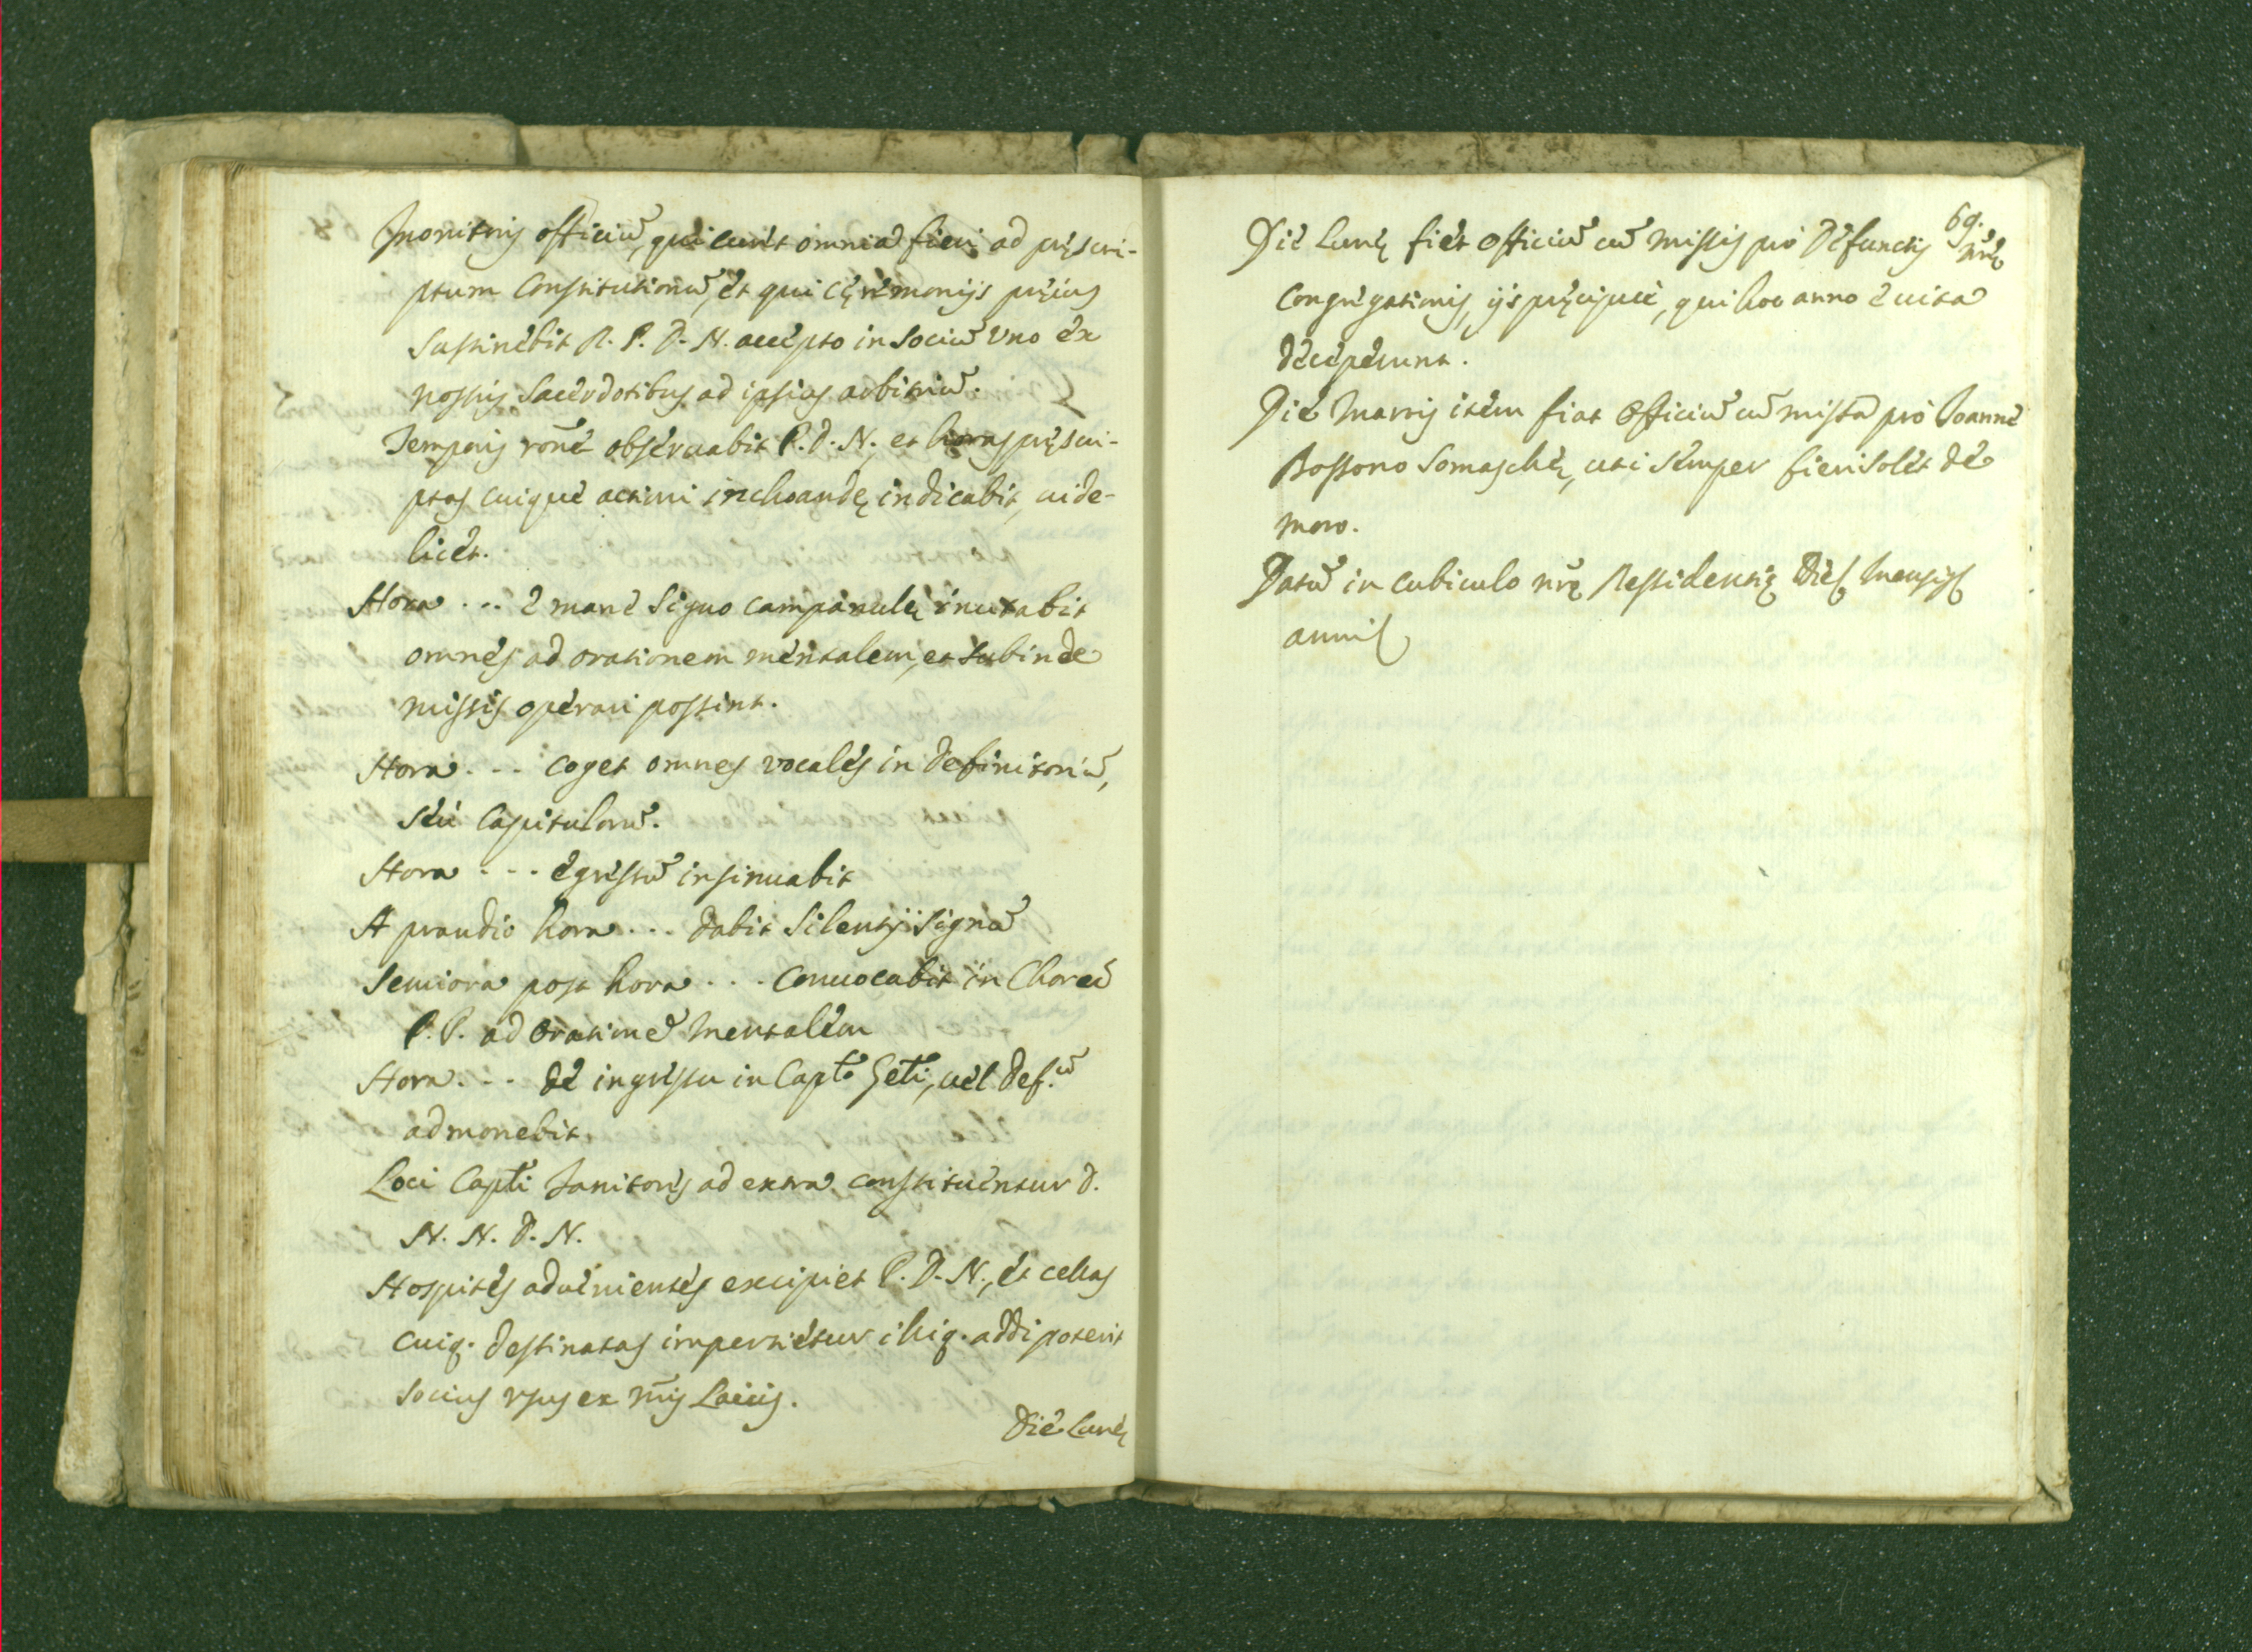 Monitoris officiū, qui curet omnia fieri ad pręscri-
ptum Constitutionū, et qui cęremonijs pręius
sustinebit R. P. D. N. accepto in Sociū vno ex
nostris Sacerdotibus ad ipsius arbitriū.
Temporis rōnē obseruabit P. D. N. et horas pręscri-
ptas cuique actioni inchoandę indicabit, uide-
licet.
Hora ... è mane signo campanulę inuitabit
omnes ad orationem mentalem, et subinde
missis operari possint.
Hora ... coget omnes vocales in definitoriū,
seu Capitularū.
Hora ... egressū insinuabit
A prandio hora ... dabit silentij signū
Semiora post hora ... conuocabit in Chorū
P. P. ad orationē mentalem
Hora ... de ingressu in Capto Gēti, uel def.ū
admonebit.
Loci Capti Janitoris ad extra constituentur D.
N. N. D. N.
Hospites aduenientes excipiet P. D. N., et cellas
cuiq. destinatas impertietur illiq. addi poterit
socius vsus ex nr̄is Laicis.
Die Lunę
69.
Die Lunę fiet officiū cū missis pro defunctis nr̄ę
Congregationis, ijs pręcipuè, qui hoc anno è uita
decesserunt.
Die Martis item fiat officiū cū missa pro Ioanne
Bossono Somaschę, uti semper fieri solet de
more.
Datū in cubiculo nr̄ę Residentię Die Mensis
anni